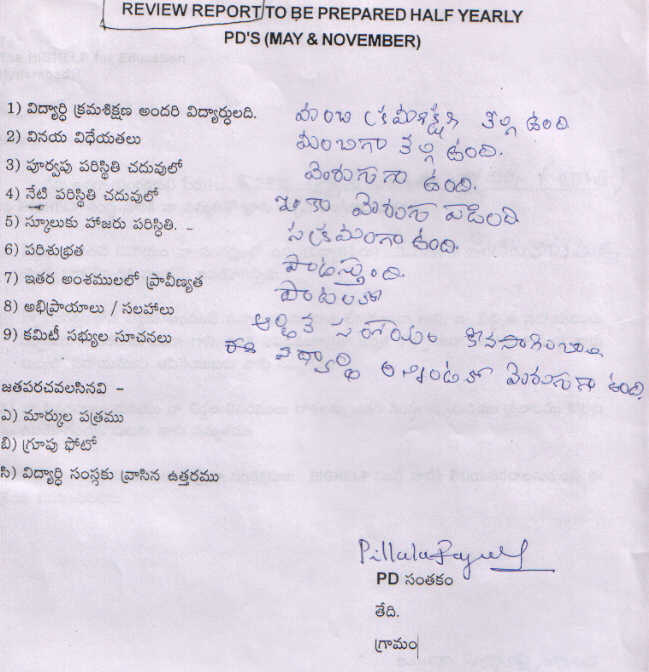 REVIEW REPORT TO BE PREPARED HALF YEARLY
PD'S (MAY & NOVEMBER)
1) విద్యార్ధి క్రమశిక్షణ అందరి విద్యార్ధులది. మంచి క్రమశిక్షణ కల్గి ఉంది
2) వినయ విధేయతలు మంచిగా కల్గి ఉంది.
3) పూర్వపు పరిస్థితి చదువులో మెరుగుగా ఉంది.
4) నేటి పరిస్థితి చదువులో ఇంకా మెరుగు పడింది
5) స్కూలుకు హాజరు పరిస్థితి. - సక్రమంగా ఉంది.
6) పరిశుభ్రత పాటిస్తుంది.
7) ఇతర అంశములలో ప్రావీణ్యత పాటలలో
8) అభిప్రాయాలు / సలహాలు ఆర్థిక సహాయం
9) కమిటీ సభ్యుల సూచనలు ఈ విద్యార్థి అన్నింటిలో మెరుగుగా ఉంది.
జతపరచవలసినవి -
ఎ) మార్కుల పత్రము
బి) గ్రూపు ఫోటో
సి) విద్యార్ధి సంస్థకు వ్రాసిన ఉత్తరము
PD సంతకం
తేది.
గ్రామం